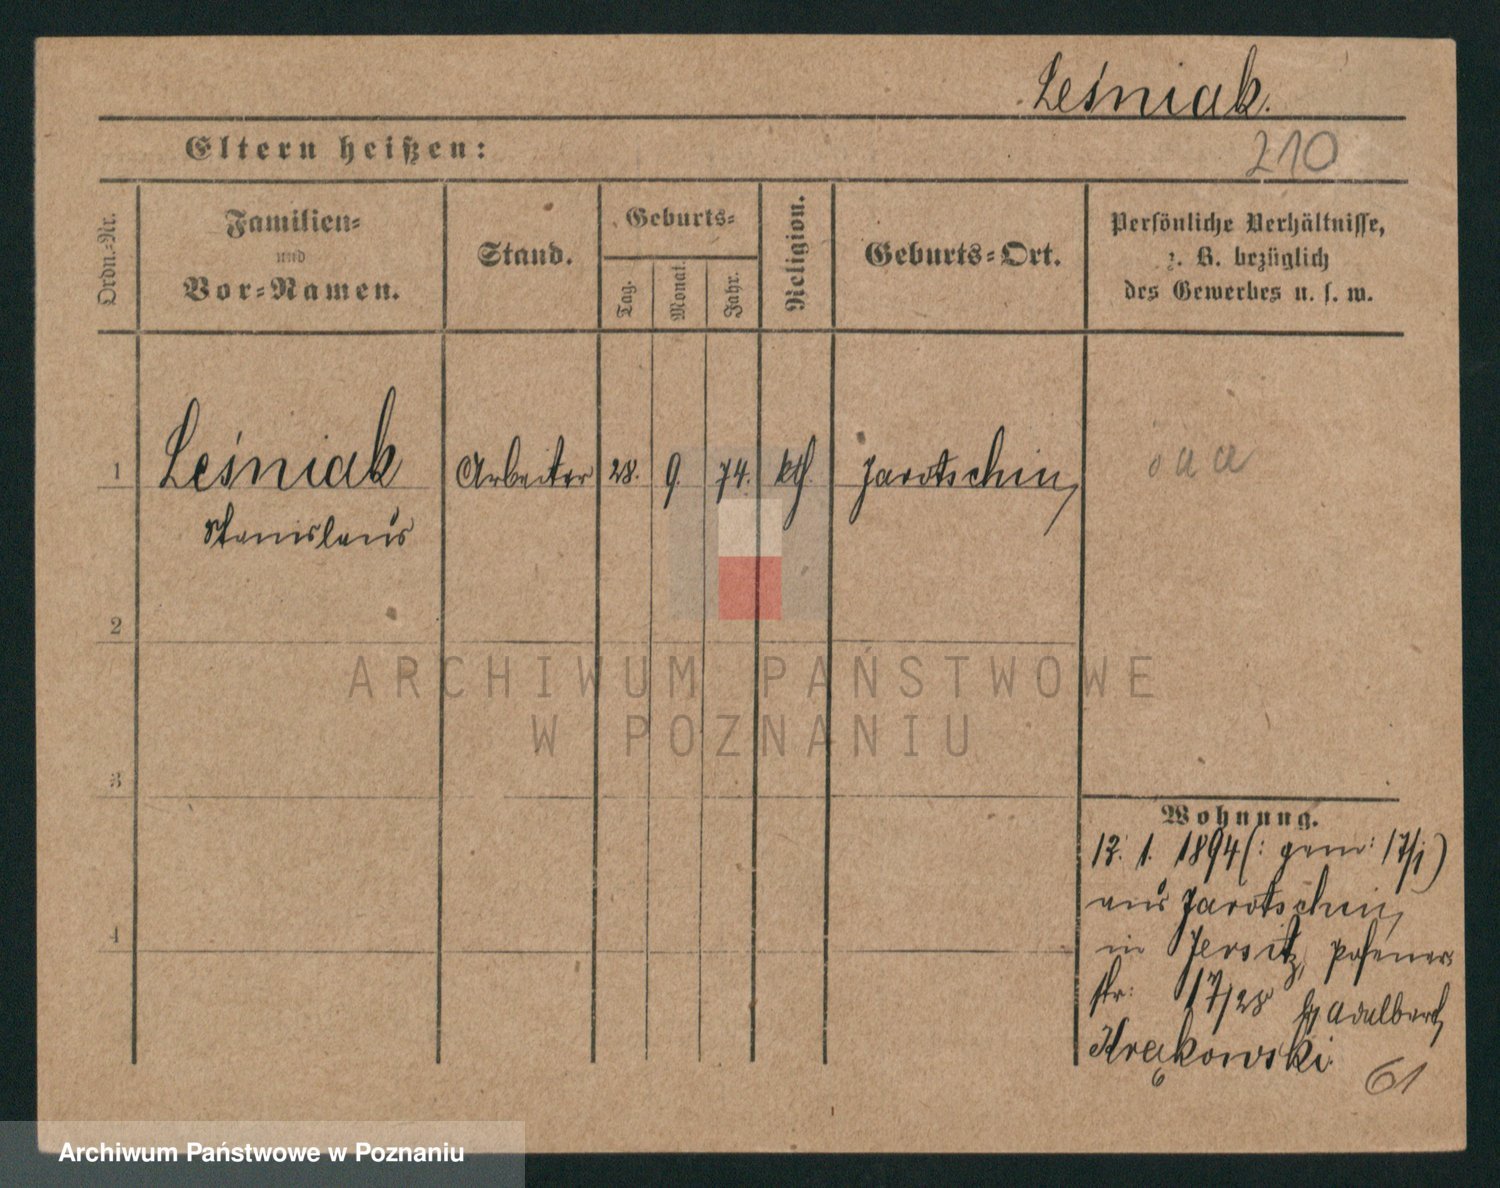 Leśniak.
Eltern heißen:
210
Ordn.-Nr.
Familien-
und
Vor-Namen.
Stand.
Geburts-
Tag.
Monat.
Jahr.
Religion.
Geburts-Ort.
Persönliche Verhältnisse,
z. B. bezüglich
des Gewerbes u. s. w.
1 Leśniak Arbeiter 28. 9. 74. kth. Jarotschin
Stanislaus
2
3
4
ARCHIWUM PAŃSTWOWE
W POZNANIU
Wohnung.
1. 1894 (: gem: 17/1)
aus Jarotschin,
in Jersitz, Posener
str: 17/28 Adalbert
61
Archiwum Państwowe w Poznaniu